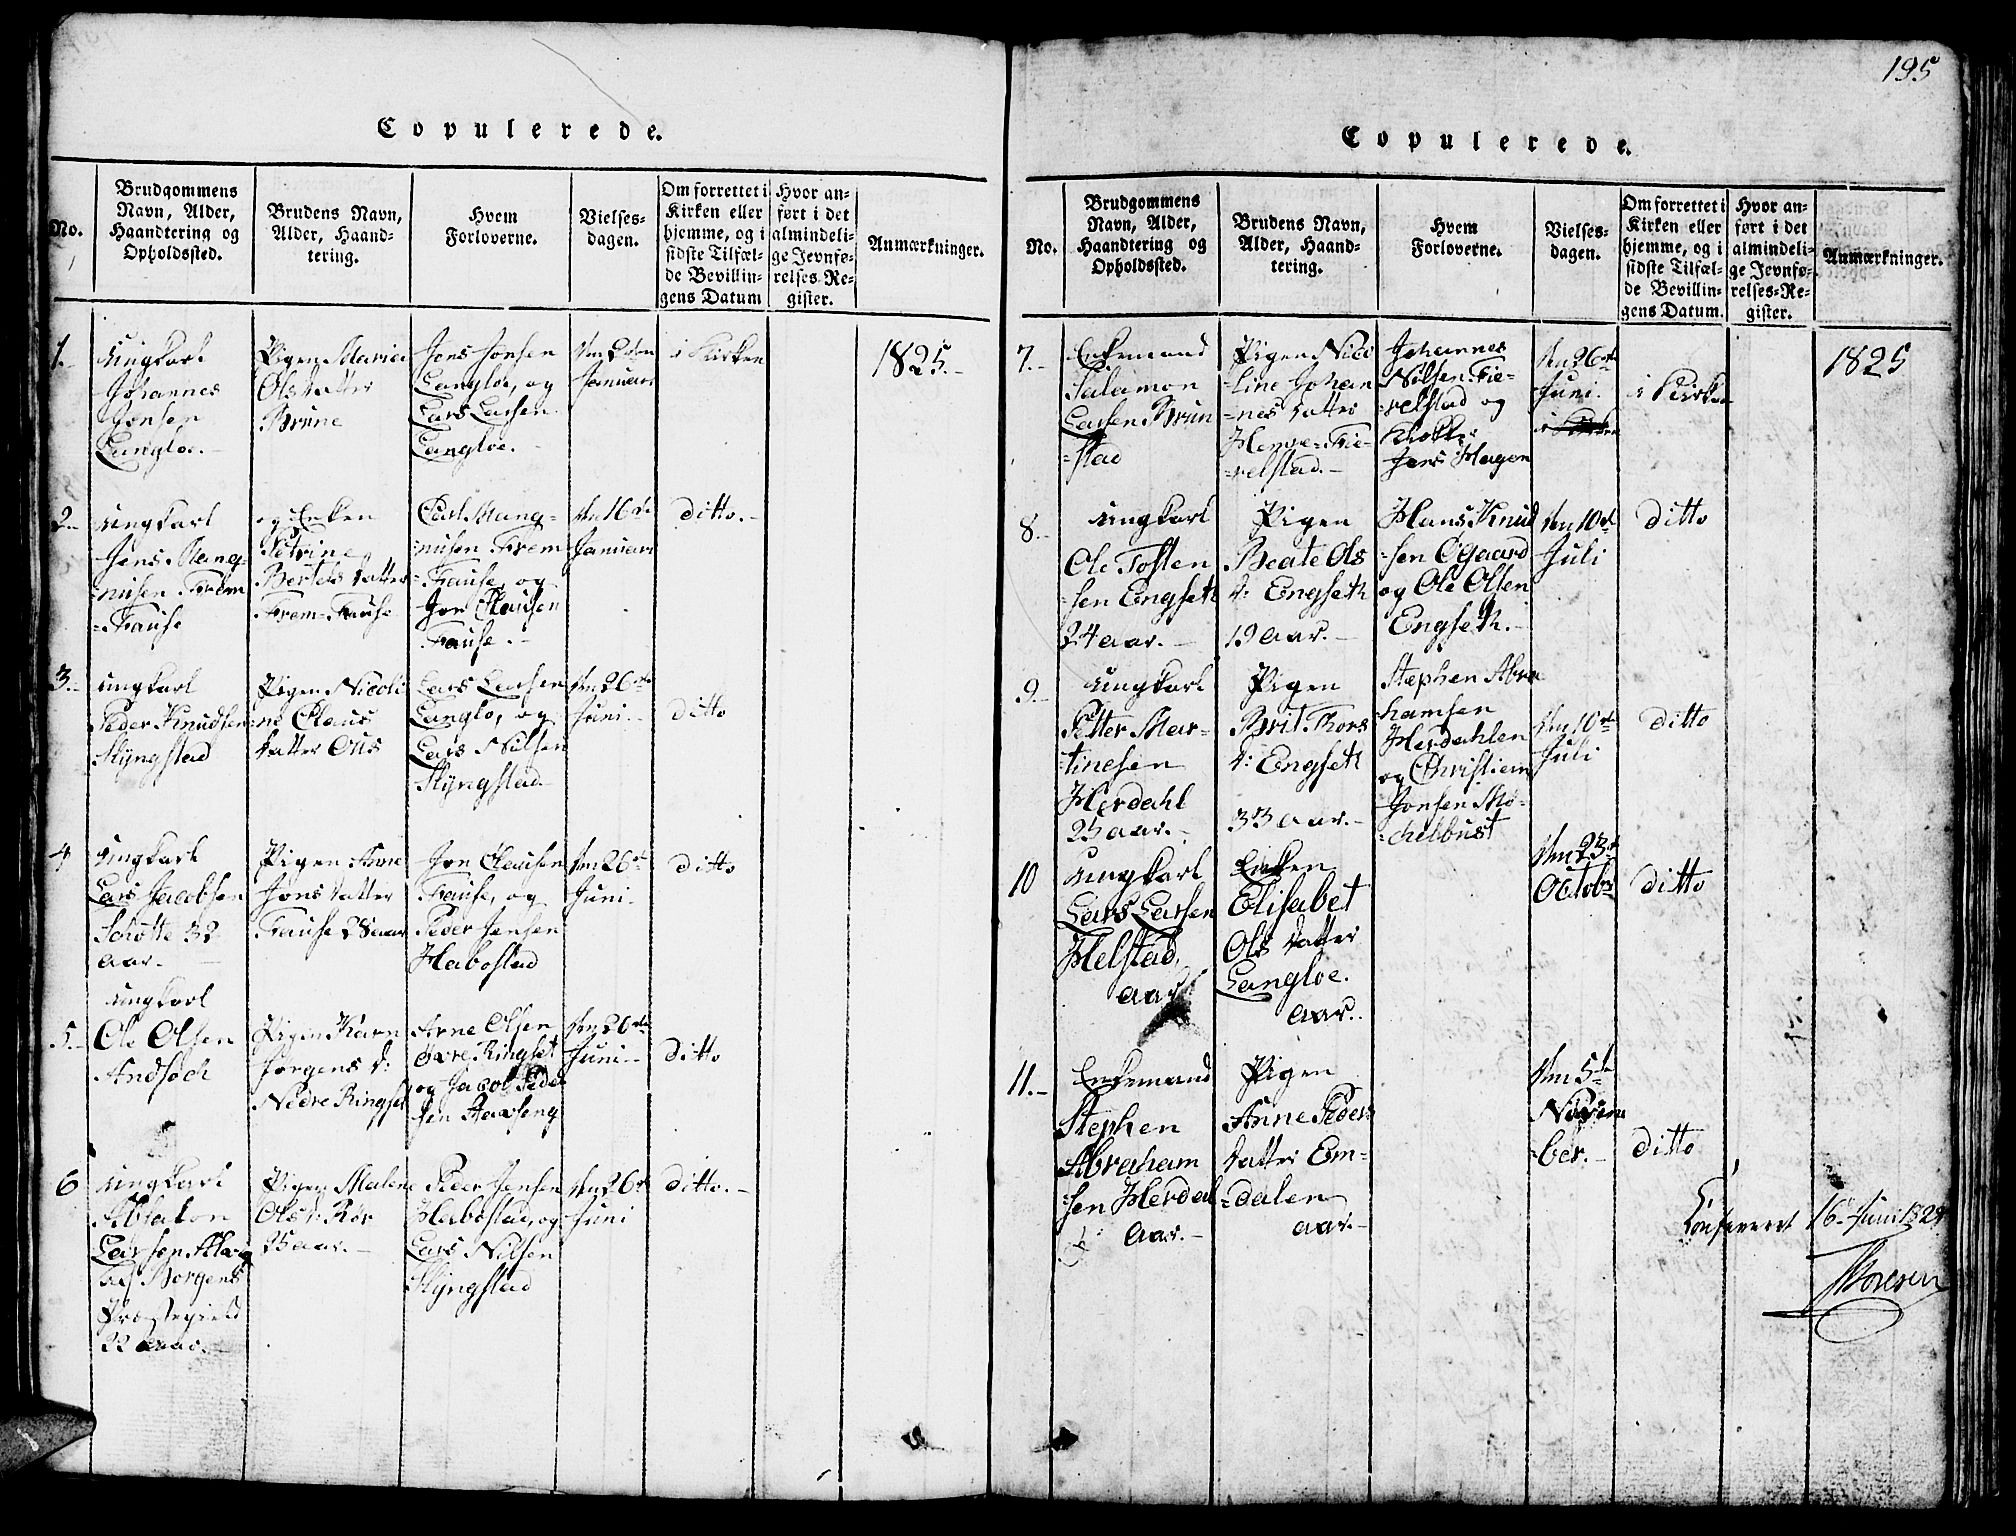 195
Copulerede.
No.
Brudgommens
Navn, Alder,
Haandtering og
Opholdssted.
Brudens Navn,
Alder, Haand-
tering.
Hvem
Forloverne.
Vielses-
dagen.
Om forrettet i
Kirken eller
hjemme, og i
sidste Tilfæl-
de Bevillin-
gens Datum
Hvor an-
ført i det
almindeli-
ge Jevnfø-
relses-Re-
gister.
Anmærkninger.
1.
Ungkarl
Johannes
Jonsen
Langloe.
Pigen Maria
Olsdatter
Brune
Jens Jonsen
Langloe, og
Lars Larsen
Langloe.
Januari
i Kirken
1825.
2.
Ungkarl
Jens Mang-
nusen Frem
=Frause
og Enken
Petrine
Bertelsdatter
Frem-Frause
Carl Mang-
nusen Frem
Frause, og
Jon Clausen
Frause.
den 16de
Januari
ditto.
3.
Ungkarl
Peder Knudsen
Slyngstad
Pigen Nicoli
ne Claus
datter Ous
Lars Larsen
Langlo, og
Lars Nilsen
Slyngstad
den 26de
Juni
ditto
4
Ungkarl
Lars Jacobsen
Schotte 32
aar.
Pigen Anne
Jonsdatter
Frause 28 aar
Jon Clausen
Frause, og
Peder Jensen
Habostad
den 26de
Juni
ditto
5.
Ungkarl
Ole Olsen
Andsoch
Pigen Karn
Jørgens d:
Nedre Ringset
Arne Olsen
øvre Ringset
og Jacob Peder
sen Aarseng
den 26de
Juni
ditto
6
Ungkarl
Absalon
Larsen
af Borgens
Præstegield
22 aar.
Pigen Malene
Ols d: Rør
25 aar.
Peder Jensen
Habostad, og
Lars Nilsen
Slyngstad
den 26de
Juni
ditto.
Copulerede.
No.
Brudgommens
Navn, Alder,
Haandtering og
Opholdssted.
Brudens Navn,
Alder, Haand-
tering.
Hvem
Forloverne.
Vielses-
dagen.
Om forrettet i
Kirken eller
hjemme, og i
sidste Tilfæl-
de Bevillin-
gens Datum.
Hvor an-
ført i det
almindeli-
ge Jevnfø-
relses-Re-
gister.
Anmærkninger.
7.
Enkemand
Salamon
Larsen Brun
=stad
Pigen Nico
=line Johan
=nesdatter
Fie-
=relstad.
Johannes
Nilsen Fie-
=relstad og
Klokker
Jens Hagen
den 26de
Juni.
i Kirken
i Kirken
1825
8.
Ungkarl
Ole Tosten
=sen Engseth
24 aar.
Pigen
Beate Ols
d: Engseth
19 aar.
Hans Knud
=sen Ogaard
og Ole Olsen
Engseth.
den 10de
Juli
ditto
9.
Ungkarl
Petter Mar-
=tinesen
Herdahl
25 aar.
Pigen
Brit Thors
d: Engseth
33 aar.
Stephen Abra
=hamsen
Herdahlen
og Christien
Jonsen Mø-
=chelbust
den 10de
Juli
ditto
10
Ungkarl
Lars Larsen
Helstad,
aar
Enken
Elisabet
Olsdatter
Langloe.
aar.
den 23de
Octobr
ditto
11.
Enkemand
Stephen
Abraham
=sen Herdal
aar.
Pigen
Anne Peders
datter Em-
=dalen
aar.
den 5te
Novem
=ber.
ditto
16 Juni 1829